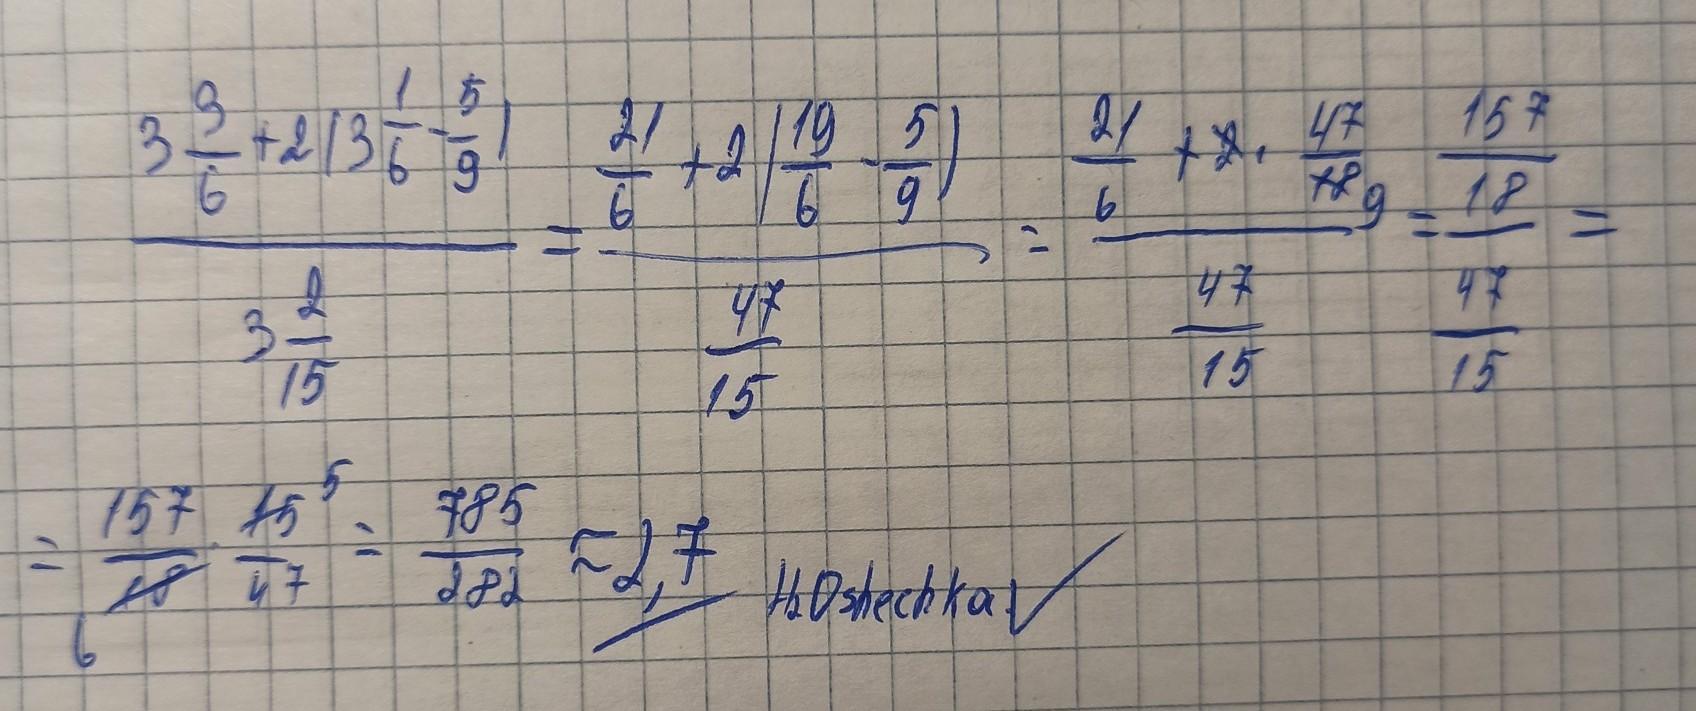 3 3/6 + 2(3 1/6 - 5/9) / 3 2/15 = 21/6 + 2(19/6 - 5/9) / 47/15 = 21/6 + 2 · 47/18 9 / 47/15 = 157/18 / 47/15 =
= 157/18 6 · 15 5/47 = 785/282 ≈ 2,7 H2Oshechka ✓